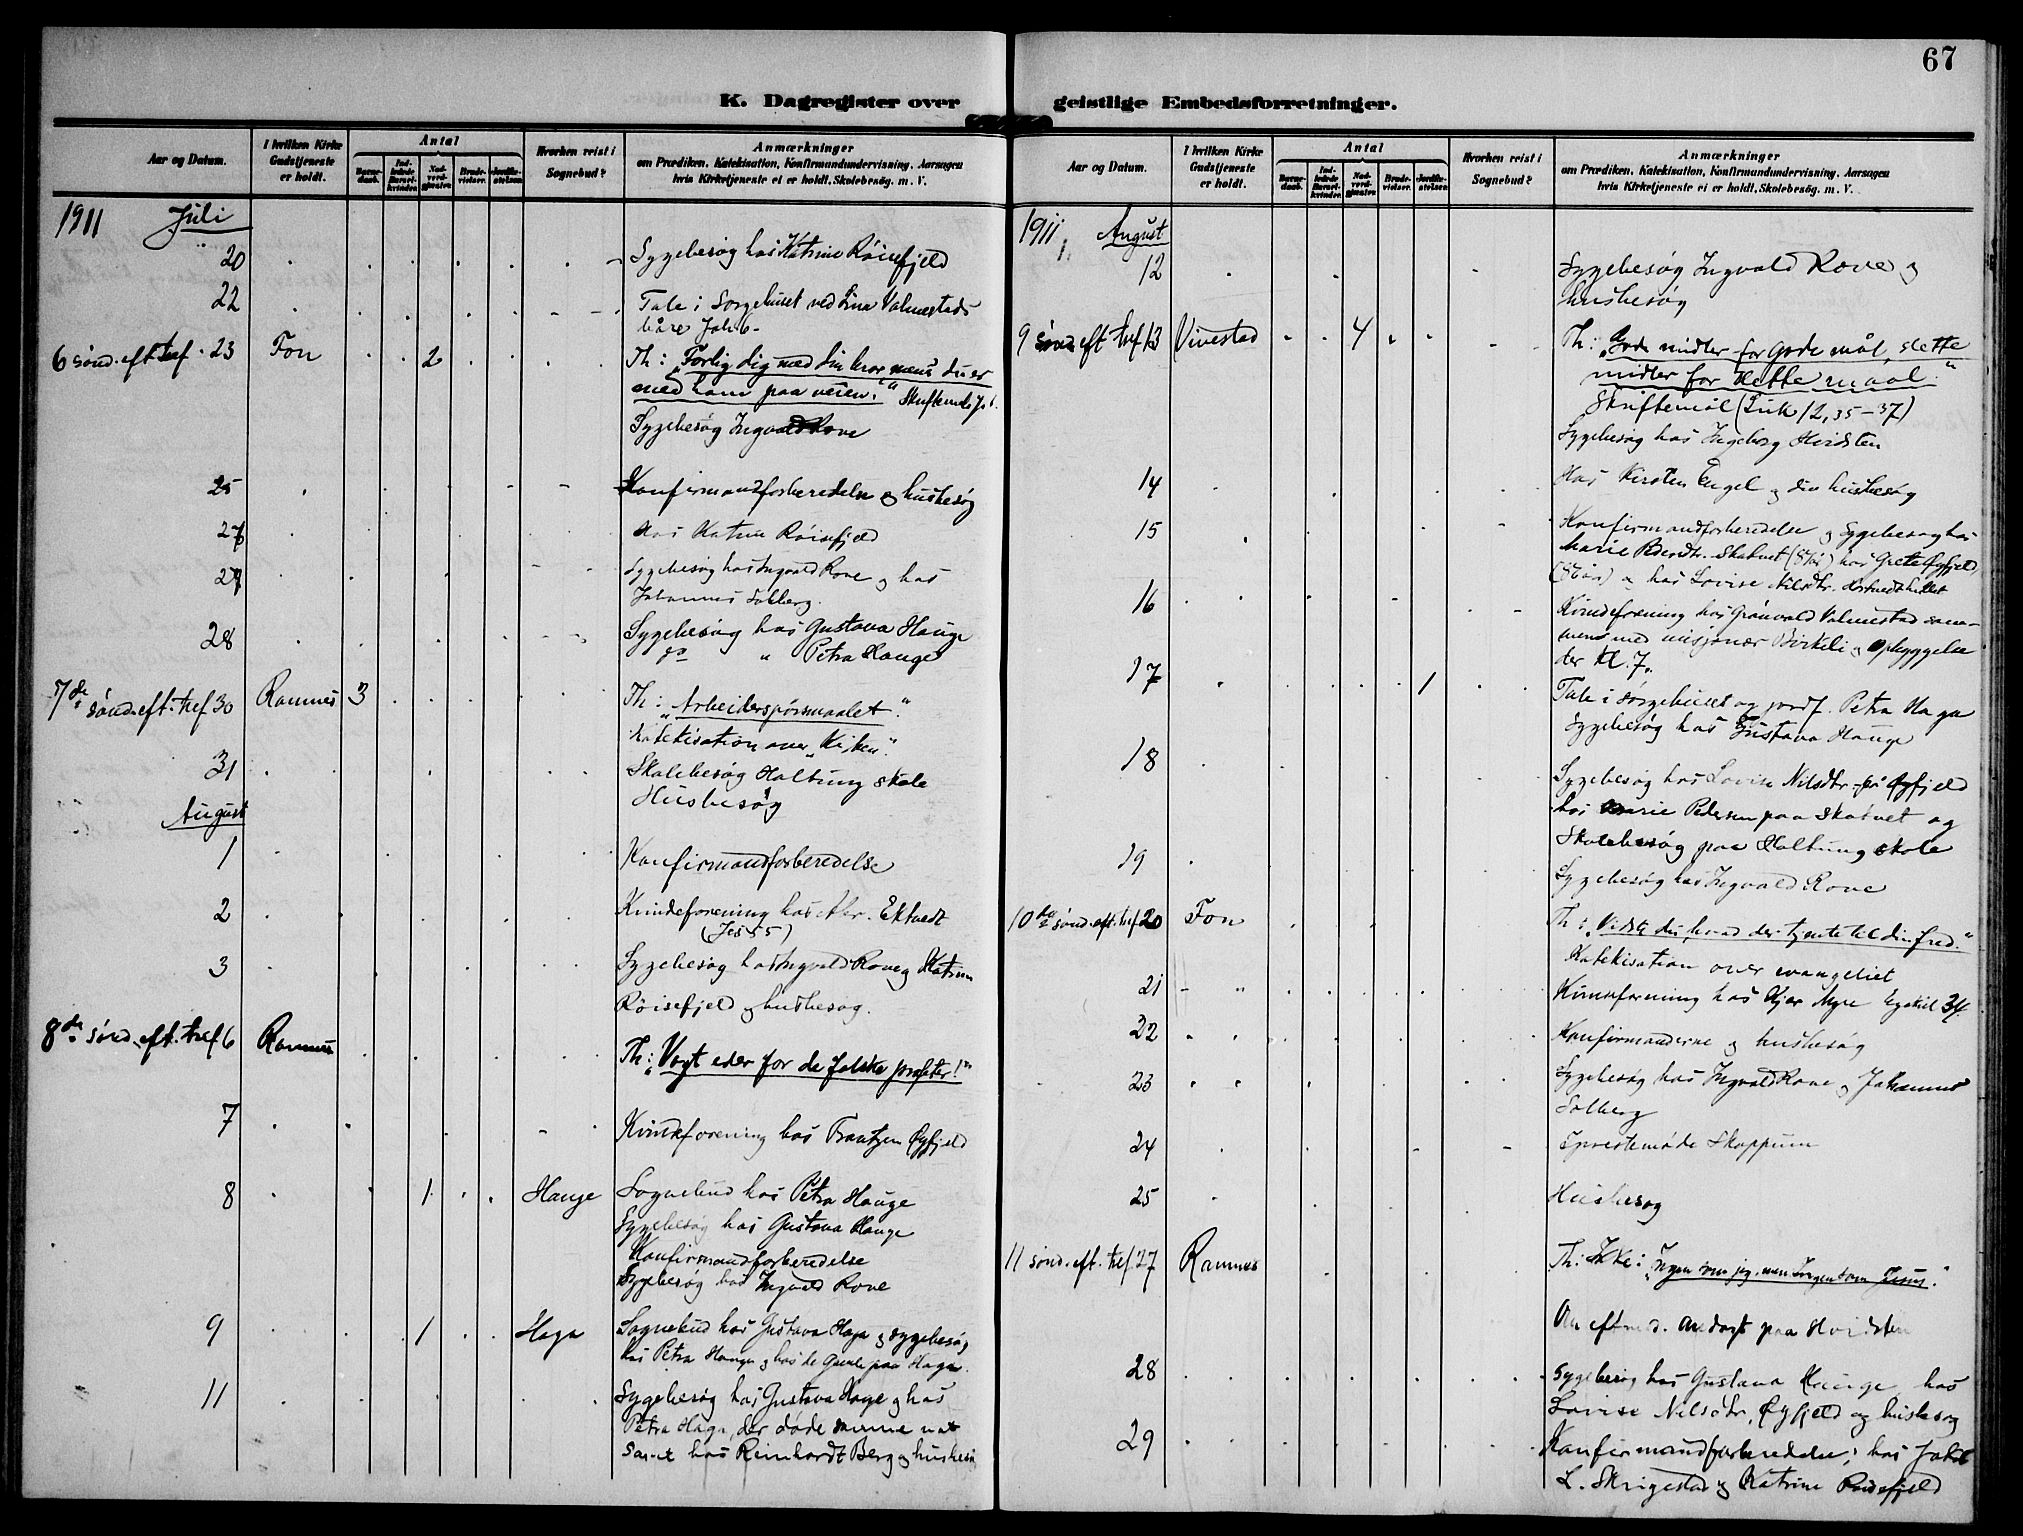 67
K. Dagregister over geistlige Embedsforretninger.
Aar og Datum.
I hvilken Kirke Gudstjeneste er holdt.
Antal
Barne-daab.
Ind-ledede Barsel-kvinder.
Nad-verd-gjæster.
Brude-vielser.
Jordfæ-stelser.
Hvorhen reist i Sognebud?
Anmærkninger
om Prædiken, Katekisation, Konfirmandundervisning, Aarsagen
hvis Kirketjeneste ei er holdt, Skolebesög. m. V.
1911 Juli
20 Sygebesøg hos Katrine Röisefjeld
22 Tale i Sorgehuset ved Lina Valmestads
båre Joh 6
6 sønd. eft. tref. 23 Fon 2 Th: "Forlig dig med din bror mens du er
med ham paa veien."
Sygebesøg Ingvald Rove
25 Konfirmandforberedelse og husbesøg
27 Hos Katrine Röisefjeld
Sygebesøg hos Ingvald Rove og hos
Johannes Solberg.
28 Sygebesøg hos Gustava Hauge
do " Petra Hauge
7de sønd. eft. tref. 30 Ramnes 3 Th: "Arbeiderspörsmaalet."
Katekisation over "Kirken".
31 Skolebesøg Haltung skole
Husbesøg
August
1 Konfirmandforberedelse
2 Kvindeforening hos Ektvedt
(Jes 55)
3 Sygebesøg hos Ingvald Rove og Katrine
Röisefjeld og husbesøg.
8de sønd. eft. tref. 6 Ramnes Th: "Vogt eder for de falske profeter!"
7 Kvindeforening hos Frantzen Øyfjeld
8 1 Hauge Sognebud hos Petra Hauge
Sygebesøg hos Gustava Hauge
Konfirmandforberedelse
Sygebesøg hos Ingvald Rove
9 1 Haga Sognebud hos Gustava Haga og sygebesøg
hos Petra Hauge og hos de Gamle paa Haga.
11 Sygebesøg hos Gustava Hage og hos
Petra Haga, der døde samme nat
Samt hos Reinhardt Berg og husbesøg
Aar og Datum.
I hvilken Kirke Gudstjeneste er holdt.
Antal
Barne-daab.
Ind-ledede Barsel-kvinder.
Nad-verd-gjæster.
Brude-vielser.
Jordfæ-stelser.
Hvorhen reist i Sognebud?
Anmærkninger
om Prædiken, Katekisation, Konfirmandundervisning, Aarsagen
hvis Kirketjeneste ei er holdt, Skolebesög. m. V.
1911 August
12 Sygebesøg Ingvald Rove og
husbesøg
9 sønd eft tref 13 Vivestad 4 Th: "Gode midler for gode mål, slette
midler for slette maal."
Skriftemål (Luk 12, 35-37)
Sygebesøg hos Ingeborg Hvidsten
14 Hos Kirsten Engel og div husbesøg
15 Konfirmandforberedelse og Sygebesøg hos
Marie Skatvet hos Grete Øyfjeld
hos Lovise Nilsdtr.
16 Kvindeforening hos Grönvold Valmestad sam-
men med misjonær Birkeli og opbyggelse
der Kl. 7.
17 1 Tale i sorgehuset og jordf. Petra Haga
Sygebesøg hos Gustava Hauge
18 Sygebesøg hos Lovise Nilsdtr. Øyfjeld
hos Marie Pedersen paa Skatvet og
Skolebesøg paa Haltung skole
19 Sygebesøg hos Ingvald Rove
10de sønd. eft. tref 20 Fon Th: "Vidste du, hvad der tjente til din fred."
Katekisation over evangeliet
21 Kvindeforening hos Kjær Myre Ezekiel 34.
22 Konfirmanderne og husbesøg
23 Sygebesøg hos Ingvald Rove og Johannes
Solberg
24 Prestemøde Skoppum
25 Husbesøg
11 sønd. eft. tref. 27 Ramnes Th: Ikke: "Ingen som jeg, men Ingen som Jesus."
Om efterm. Andagt paa Hvidsten
28 Sygebesøg hos Gustava Hauge, hos
Lovise Nilsdtr, Øyfjeld og husbesøg
29 Konfirmandforberedelse; hos Jakob
L. Skrigestad og Katrine Röisefjeld